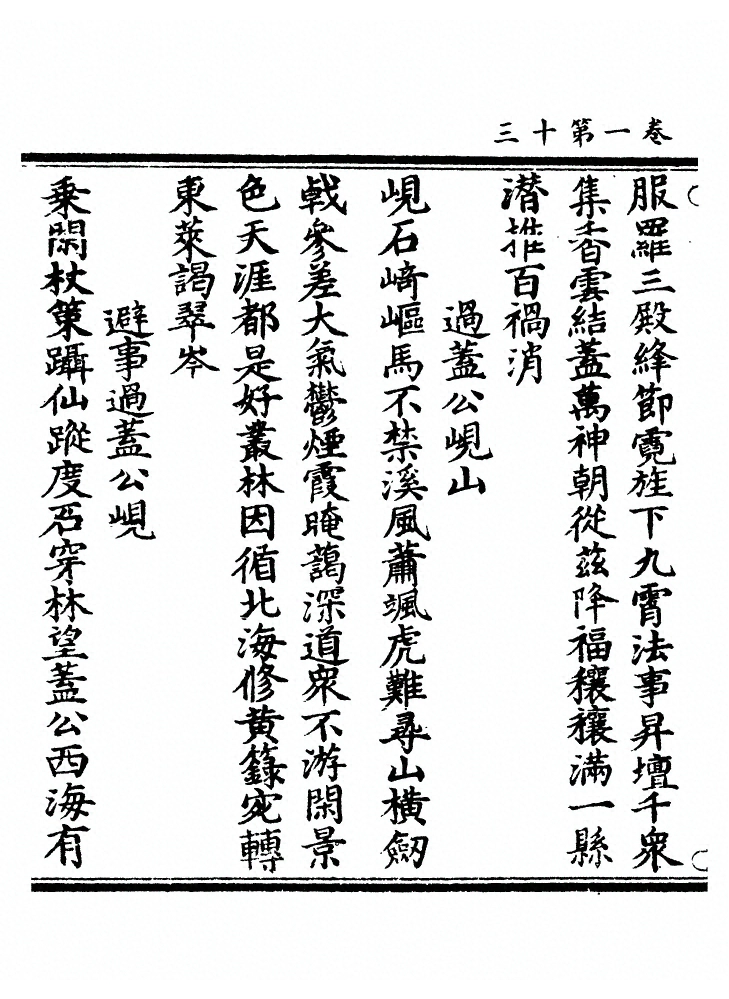 卷一第十三
服羅三殿絳節霓旌下九霄法事昇壇千衆
集香雲結蓋萬神朝從茲降福穰穰滿一縣
潛推百禍消
過蓋公峴山
峴石﨑嶇馬不禁溪風蕭颯虎難尋山橫劒
戟參差大氣鬱煙霞晻藹深道衆不游閑景
色天涯都是好叢林因循北海修黄籙宛轉
東萊謁翠岑
避事過蓋公峴
乗閑杖策躡仙蹤度石穿林望蓋公西海有